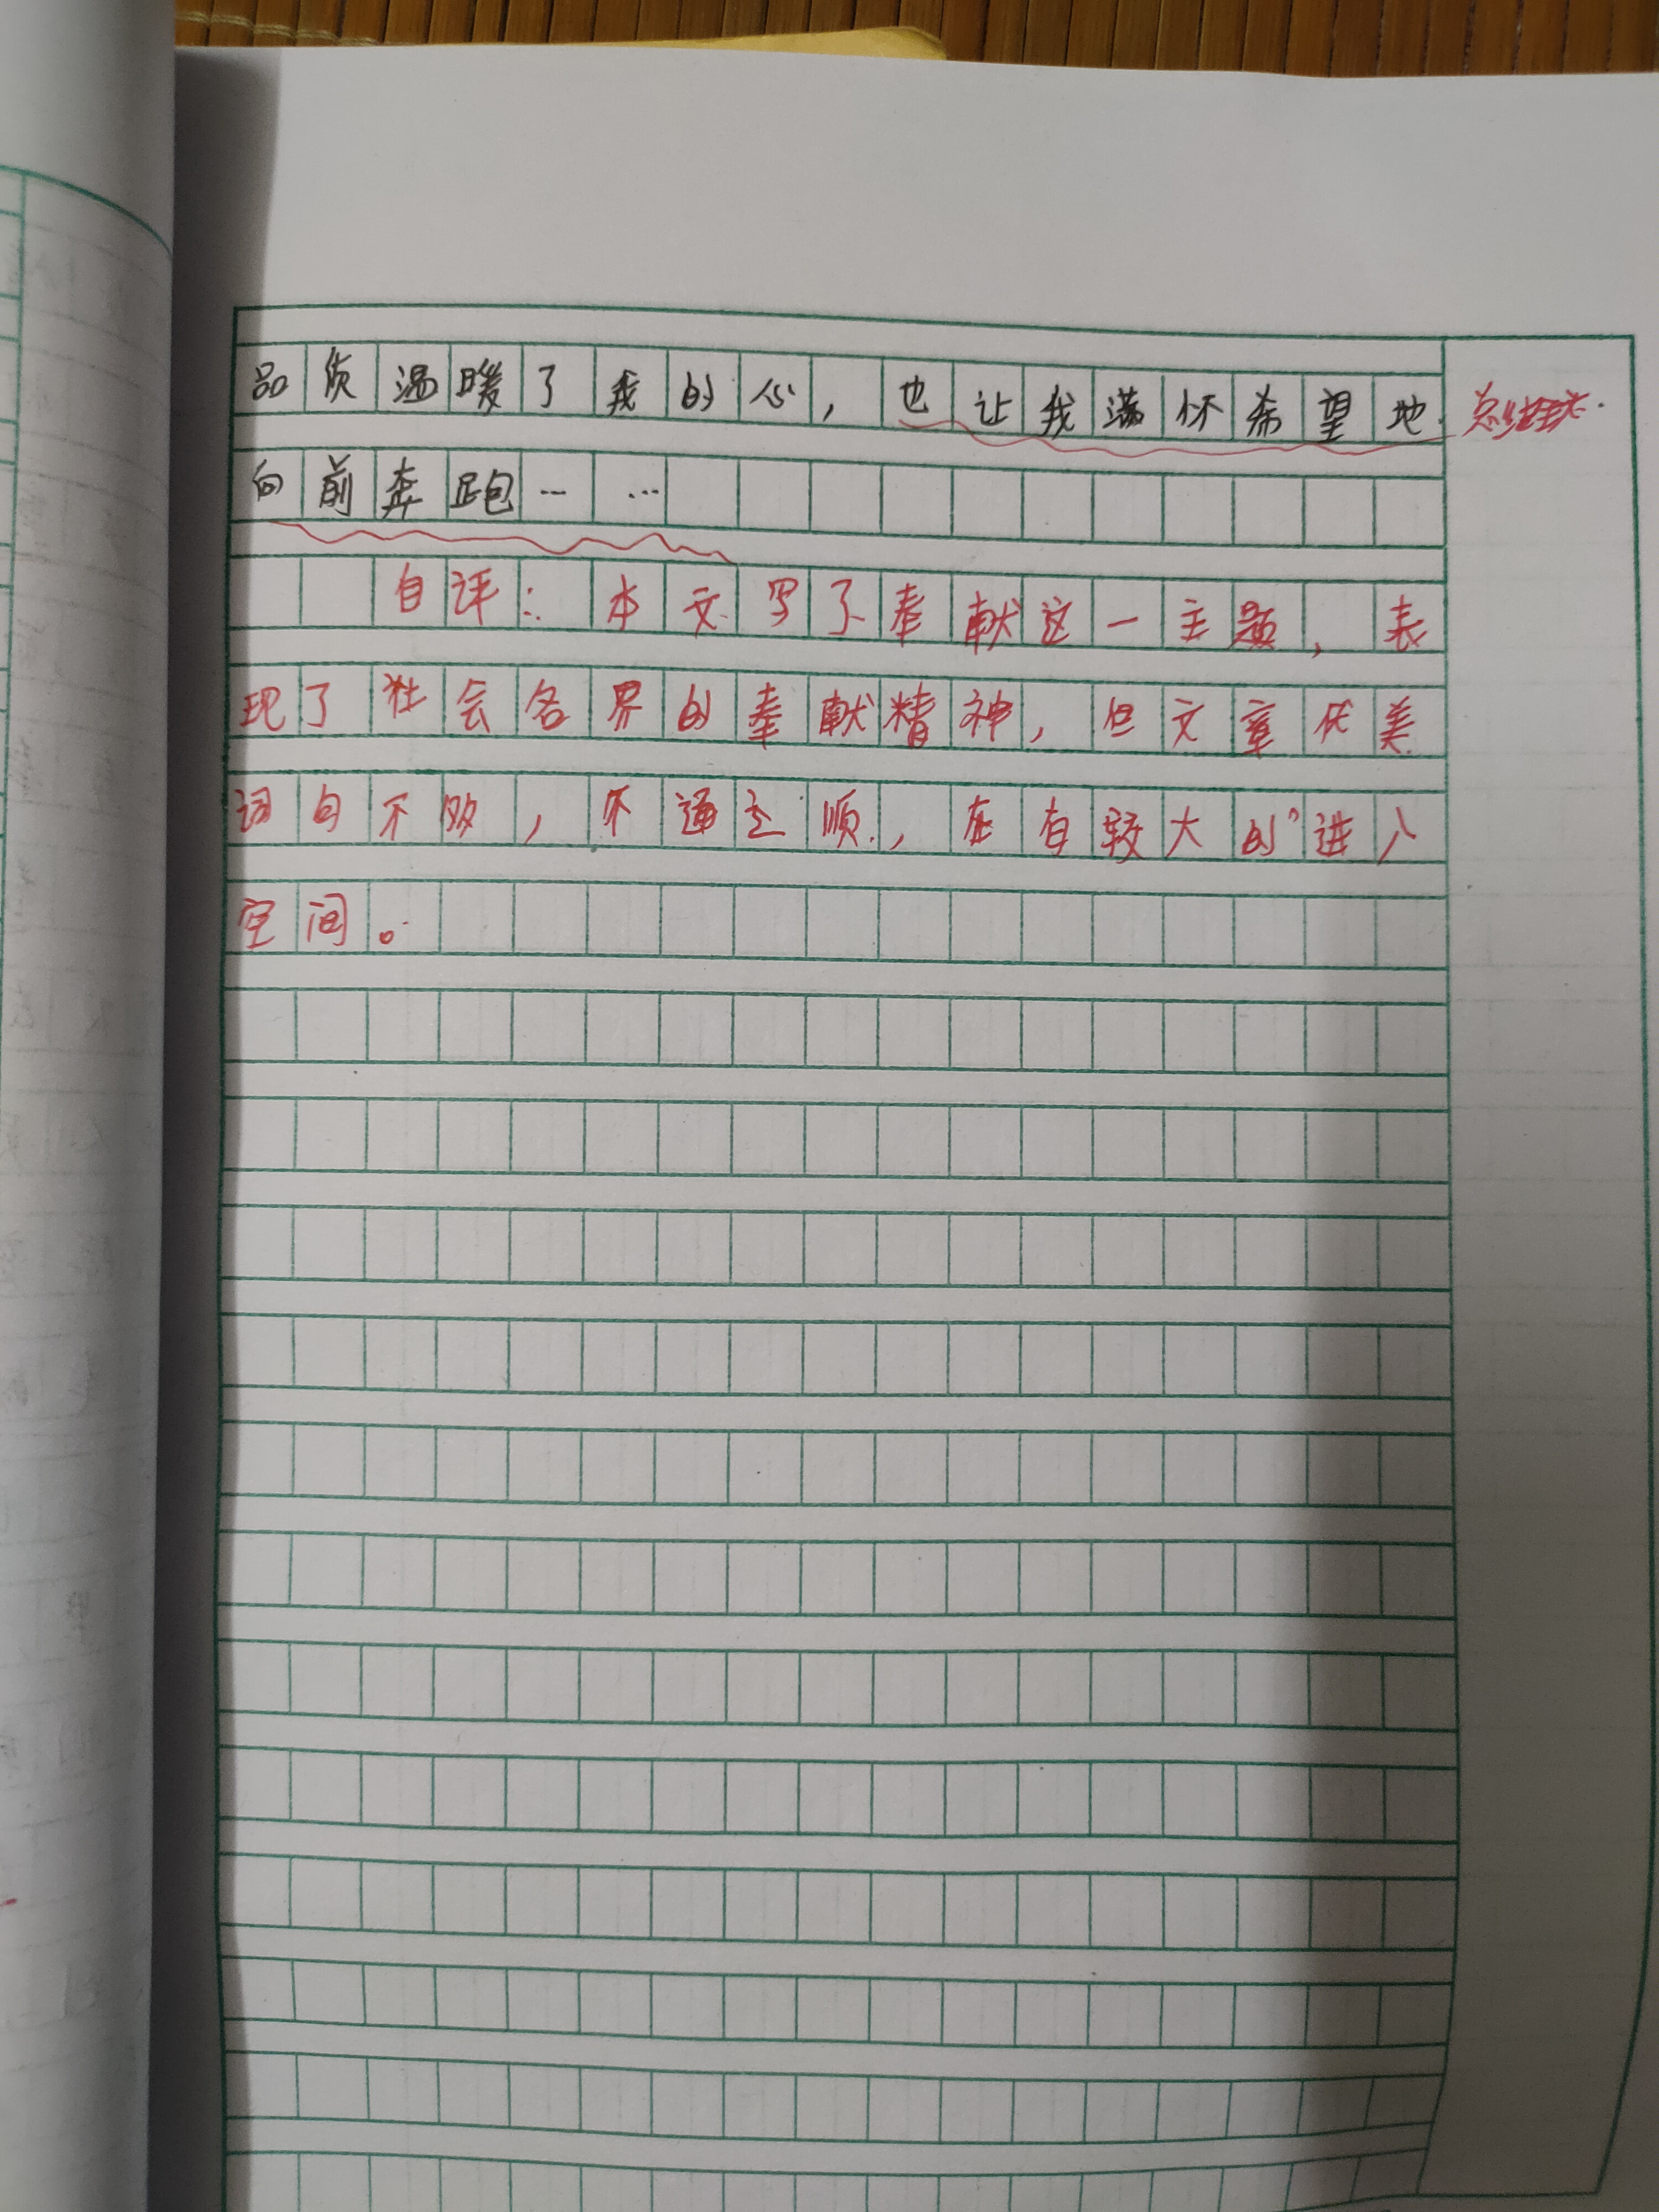 品质温暖了我的心，也让我满怀希望地
向前奔跑……
自评：本文写了奉献这一主题，表
现了社会各界的奉献精神，但文章优美
词句不够，不通之顺，在有较大的进八
空间。